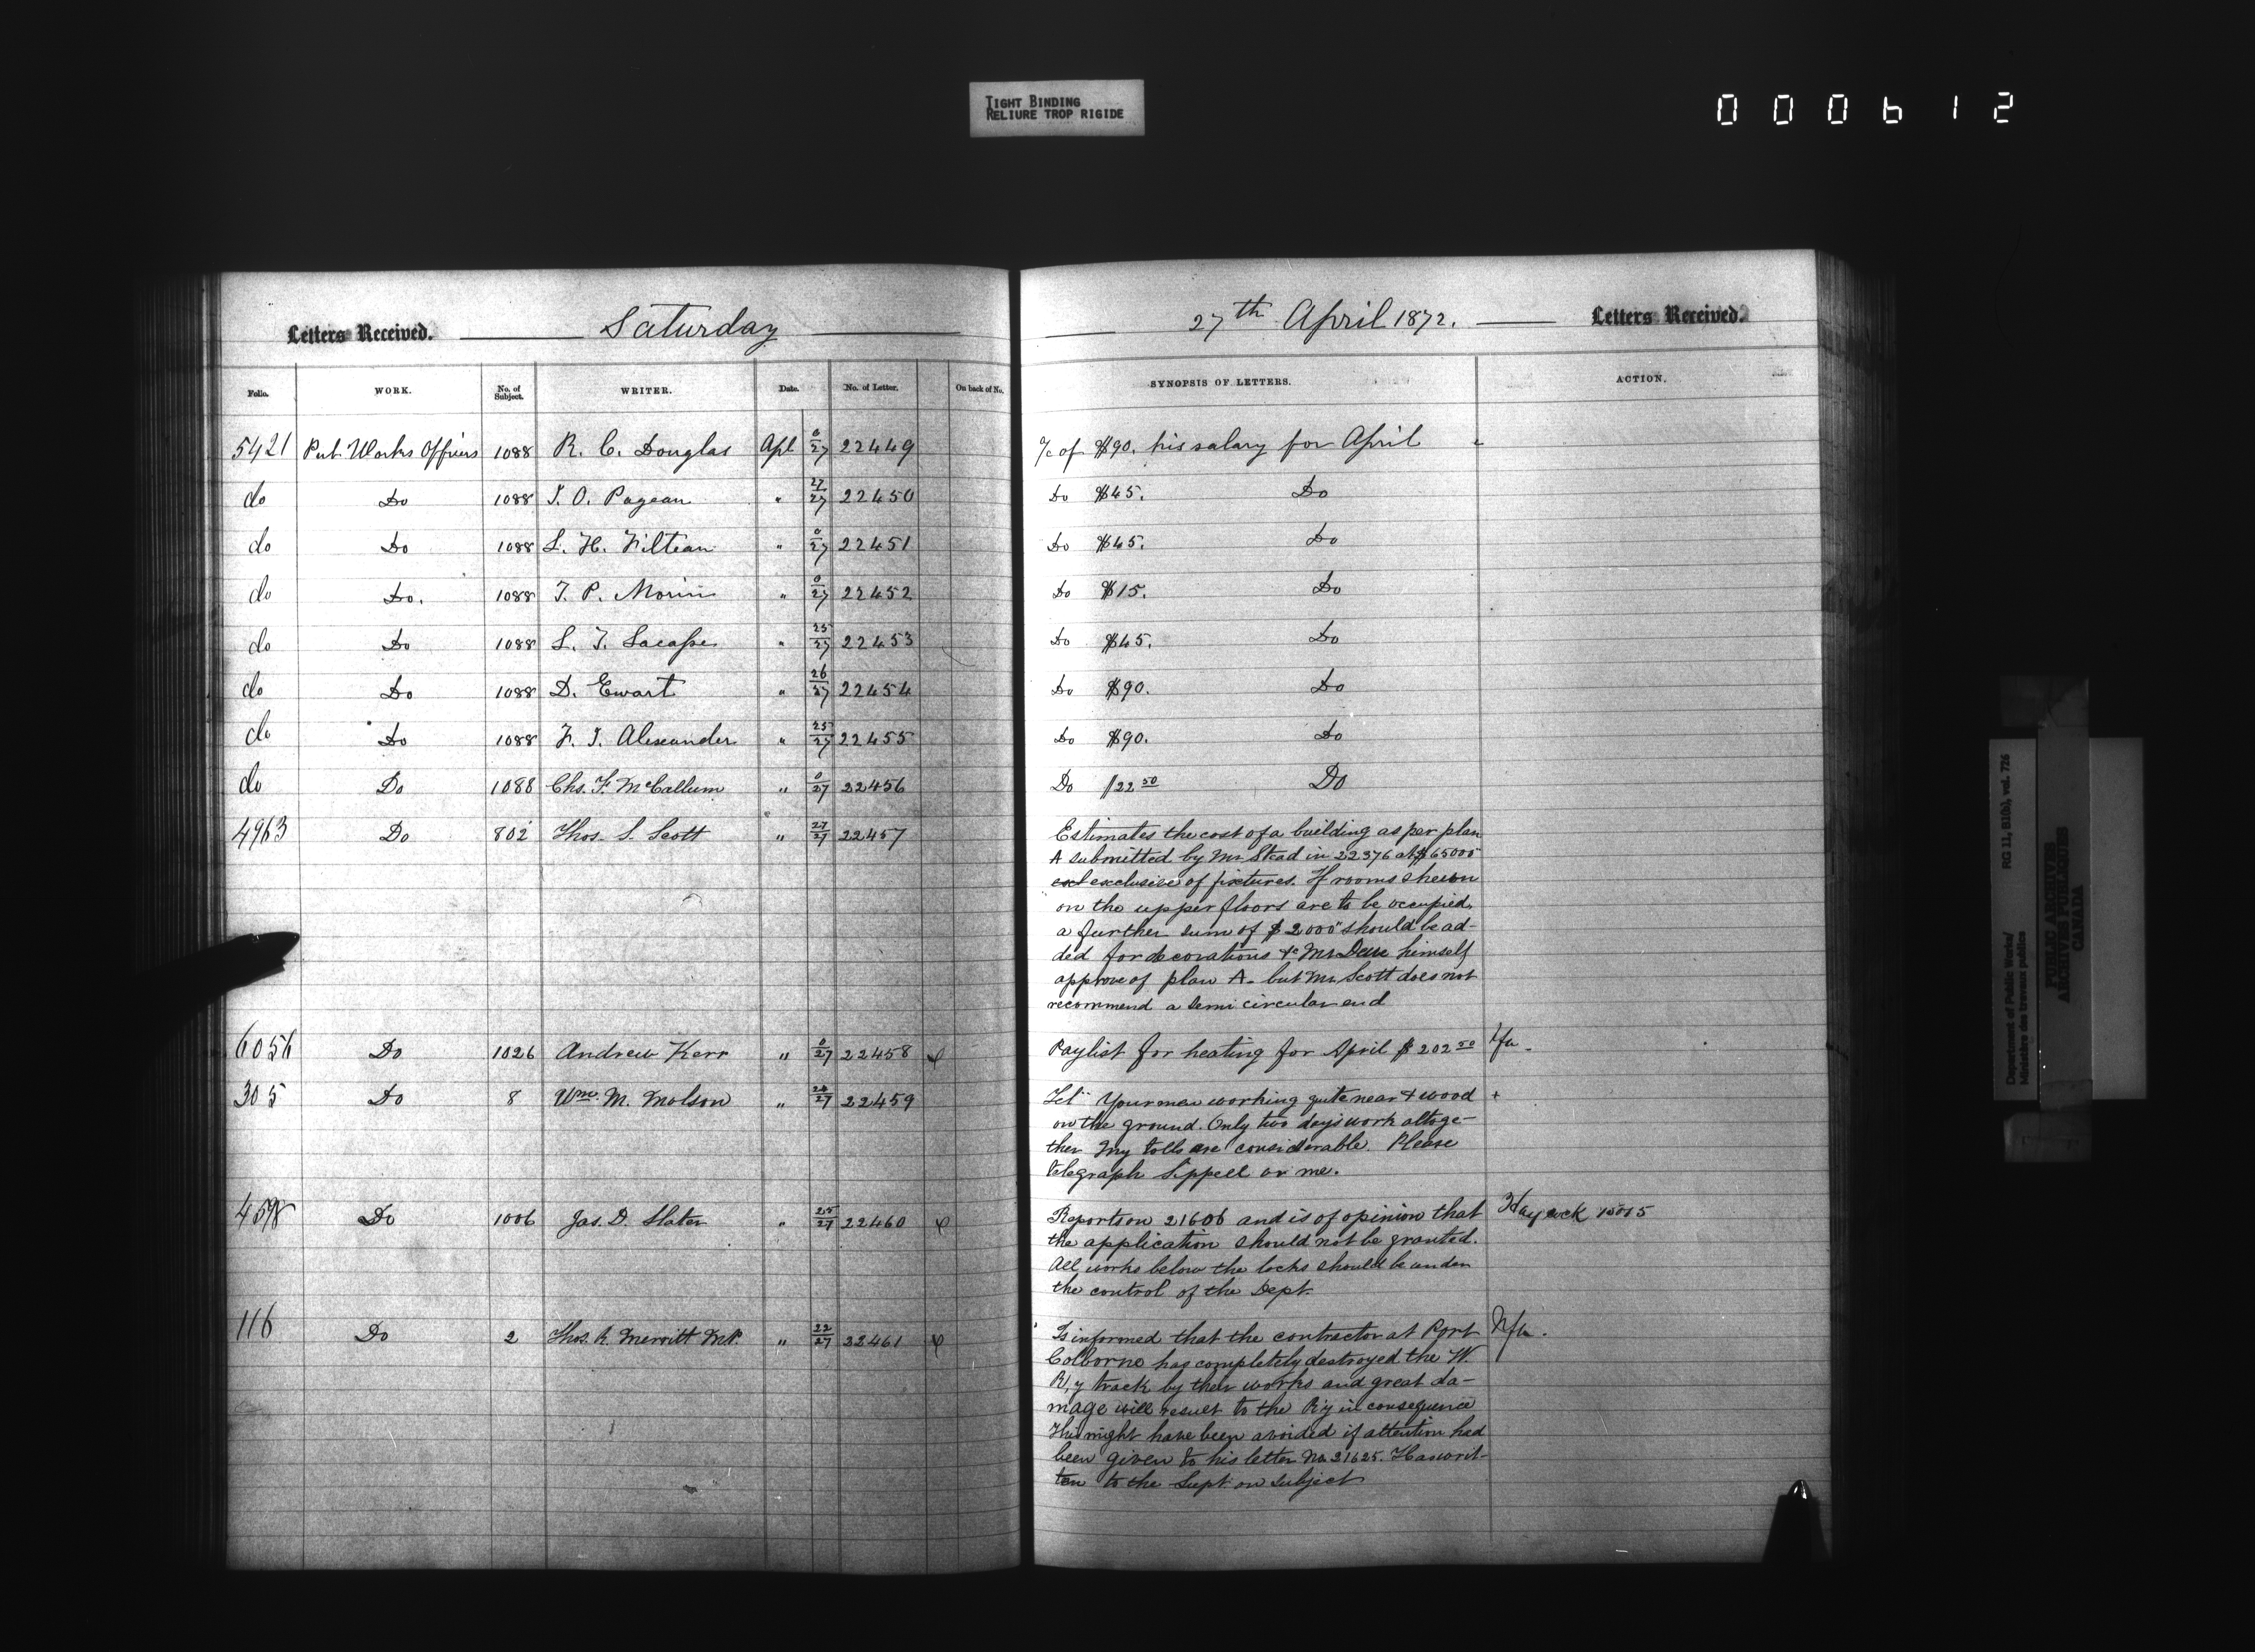 TIGHT BINDING
RELIURE TROP RIGIDE
000612
Letters Received. Saturday
Folio. WORK. No. of Subject. WRITER. Date. No. of Letter. On back of No.
5421 Pub. Works Officers 1088 R. C. Douglas Apl 0/27 22449
do Do 1088 J. O. Pageau " 27/27 22450
do Do 1088 L. H. Filteau " 0/27 22451
do Do. 1088 T. P. Morin " 0/27 22452
do Do 1088 L. T. " 25/27 22453
do Do 1088 D. Ewart " 26/27 22454
do Do 1088 F. J. Alexander " 25/27 22455
do Do 1088 Chs. F. McCallum " 0/27 22456
4963 Do 802 Thos. S. Scott " 27/27 22457
6056 Do 1026 Andrew Kerr " 0/27 22458
305 Do 8 Wm. M. Molson " 24/27 22459
4598 Do 1006 Jas. D. Slater " 25/27 22460
116 Do 2 Thos. R. Merritt M.P. " 22/27 22461
27th April 1872. Letters Received.
SYNOPSIS OF LETTERS. ACTION.
a/c of $90. his salary for April
Do $45. Do
Do $45. Do
Do $15. Do
Do $45. Do
Do $90. Do
Do $90. Do
Do $22 50 Do
Estimates the cost of a building as per plan
A submitted by Mr Stead in 22376 at $65000
excl exclusive of fixtures. If rooms shewn
on the upper floors are to be occupied,
a further sum of $2000 should be ad-
ded for decorations &c Mr himself
approve of plan A. but Mr Scott does not
recommend a semi circular end
Paylist for heating for April $202 50
Tel. Your men working quite near & wood +
on the ground. Only two days work altoge-
ther My tolls are considerable. Please
telegraph Sippell or me.
Reports on 21606 and is of opinion that Haycock
the application should not be granted.
All works below the locks should be under
the control of the Dept.
Is informed that the contractor at Port Nfa.
Colborne has completely destroyed the W.
R'y track by their works and great da-
mage will result to the R'y in consequence
This might have been avoided if attention had
been given to his letter No. 21625. Has writ-
ten to the Supt. on subject
Department of Public Works/
Ministère des travaux publics
RG 11, B1(b), vol. 726
PUBLIC ARCHIVES
ARCHIVES PUBLIQUES
CANADA